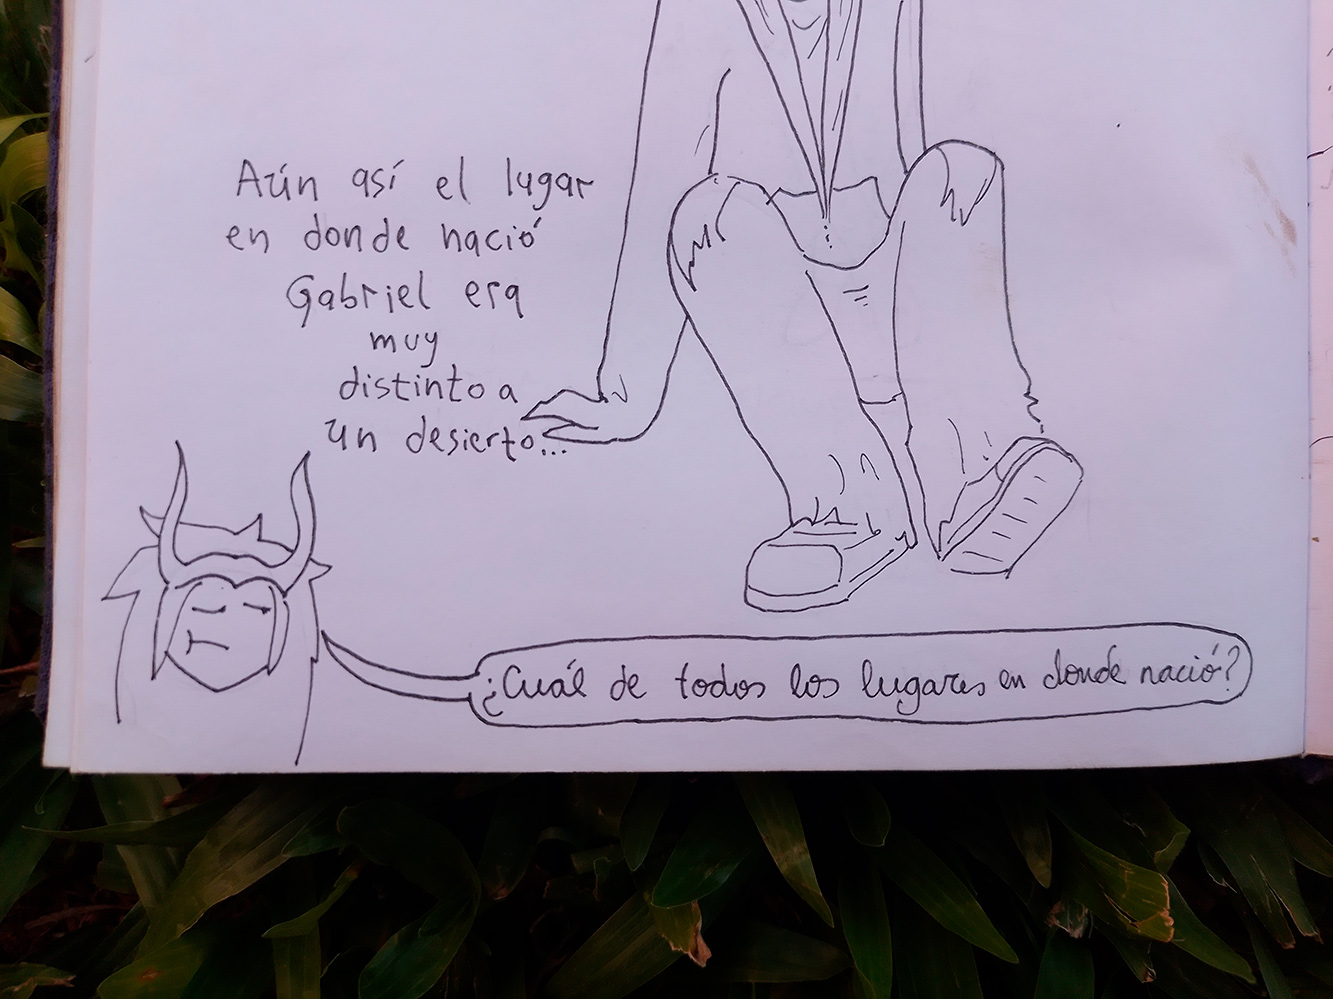 Aún así el lugar
en donde nació
Gabriel era
muy
distinto a
un desierto...
¿Cuál de todos los lugares en donde nació?